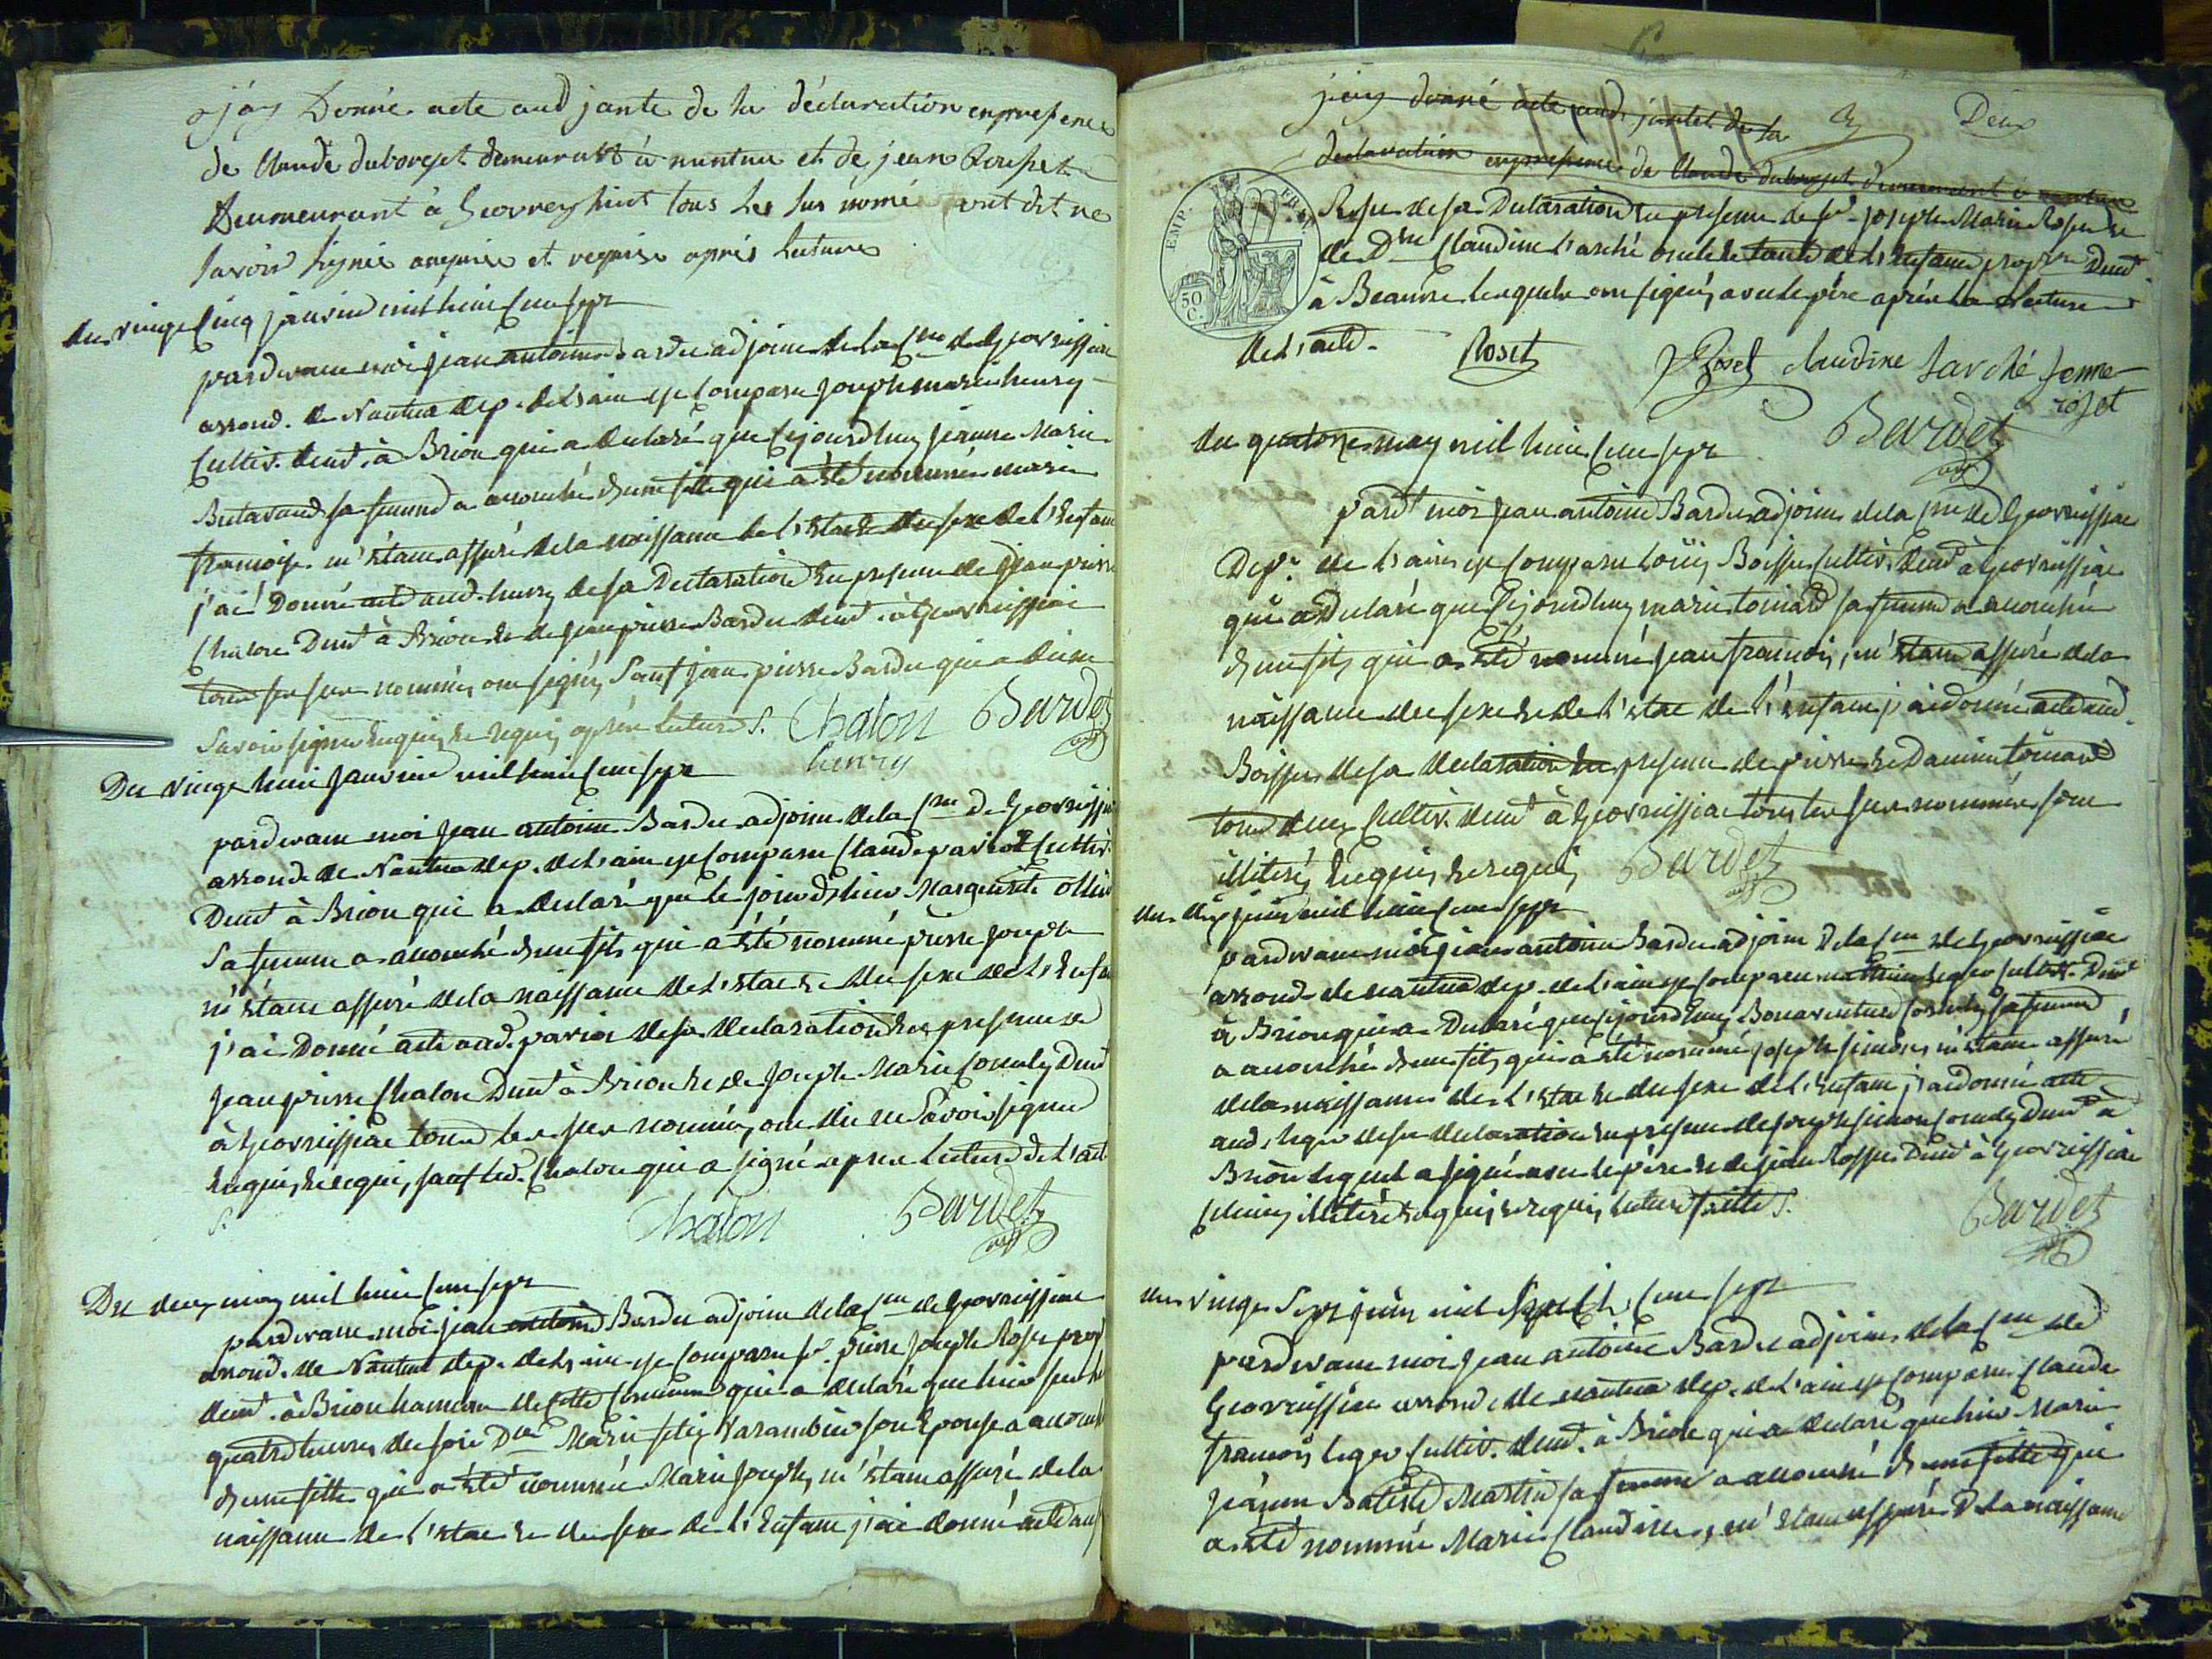 j'ay Donné acte aud jantet de la déclaration en presence
de Claude duborjet demeurant à nantua et de jean Rouset
Demeurant à Geovreyssiat tous les sus nomé ont dit ne
savoir signé anquise et requise aprés lecture
du vingt Cinq janvier mil huit Cent sept
pardevant moi jean antoine Bardet adjoint de la Cne de Geovreissiat
arrond. de Nantua dep. de l'ain est Comparu Joseph marie henry
Cultiv. demt. à Brion qui a declaré que Cejourdhuy jeanne Marie
Butavand sa femme a accouché d'une fille qui a été nommée marie
françoise m'étant assuré de la naissance de l'état et du sexe de l'Enfant
j'ai Donné acte aud. henry de sa Declaration En presence de jean pierre
Chalon Demt à Brion et de jean pierre Bardet demt. à Geovreissiat
tous les sus nommés ont signés Sauf jean pierre Bardet qui a dit ne
Savoir signer Enquis et requis aprés lecture f. Chalon Bardet
henry
Du vingt huit Janvier mil huit Cent sept
pardevant moi jean antoine Bardet adjoint de la Cne de Geovreissiat
arrond. de Nantua dep. de l'ain est Comparu Claude pariot Cultiv.
Demt à Brion qui a declaré que le jour d'hier Marguerite
Sa femme a accouché d'un fils qui a été nommé pierre joseph
m'étant assuré de la naissance de l'état et du sexe de l'Enfant
j'ai Donné acte aud. pariot de sa declaration En presence de
Jean pierre Chalon Demt à Brion et de Joseph Marie Comtet Demt
à Geovreissiat tous les sus nommés ont dit ne Savoir signer
Enquis, et requis, sauf led. Chalon qui a signé aprés lecture de l'acte
f. Chalon Bardet
Du deux may mil huit Cent sept
pardevant moi jean antoine Bardet adjoint de la Cne de Geovreissiat
arrond. de Nantua dep. de l'ain est Comparu Sr. pierre joseph Roset propr
demt. à Brion hameau de cette Commune qui a declaré que hier sur les
quatre heures du soir Dme Marie son Epouse a accouché
d'une fille qui a été nommée Marie Joseph, m'étant assuré de la
naissance de l'état et du sexe de l'Enfant j'ai donné acte aud
Deux
j'ay donné acte aud. jantet de la
déclaration en presence de Claude duborjet demeurant à nantua
EMP. FR.
50 C.
Roset de sa Declaration En presence de Sr. joseph Marie Roset et
de Dme Claudine Larché oncle et tante de l'Enfant propres Demt
à Beaune lesquels ont signés avec le père aprés la Lecture
de l'acte. Roset JRoset claudine Larché femme
roset
Bardet
du quatorze may mil huit Cent sept
pardt moi jean antoine Bardet adjoint de la Cne de Geovreissiat
Dept. de l'ain est Comparu Loüis Boisset Cultiv. Demt à Geovreissiat
qui a Declaré que Cejourdhuy marie toinard sa femme a accouché
d'un fils qui a été nommé jean françois, m'étant assuré de la
naissance du sexe et de l'état de l'Enfant j'ai donné acte aud.
Boisset de sa declaration En presence de pierre et Damien toinard
tous deux Cultiv. demt à Geovreissiat tous les sus nommés sont
illitérés Enquis et requis Bardet
du dix juin mil huit Cent sept
pardevant moi jean antoine Bardet adjoint de la Cne de Geovreissiat
arrond. de nantua dep. de l'ain est Comparu leger Cultiv. Demt
à Brion qui a Declaré que Cejourdhuy Bonaventure Comtet sa femme
a accouché d'un fils qui a été nommé joseph simon, m'étant assuré
de la naissance de l'état et du sexe de l'Enfant j'ai donné acte
aud. leger de sa declaration En presence de joseph simon Comtet Demt à
Brion lequel a signé avec le père et de jean Rosset Demt à Geovreissiat
Celui cy illitéré Enquis et requis, lecture faitte f.
Bardet
du vingt Sept juin mil huit Cent sept
pardevant moi jean antoine Bardet adjoint de la Cne de
Geovreissiat arrond. de nantua dep. de l'ain est Comparu Claude
françois leger Cultiv. demt. à Brion qui a declaré que hier Marie
jeanne Batiste Martin sa femme a accouché d'une fille qui
a été nommée Marie Claudine, m'étant assuré de la naissance